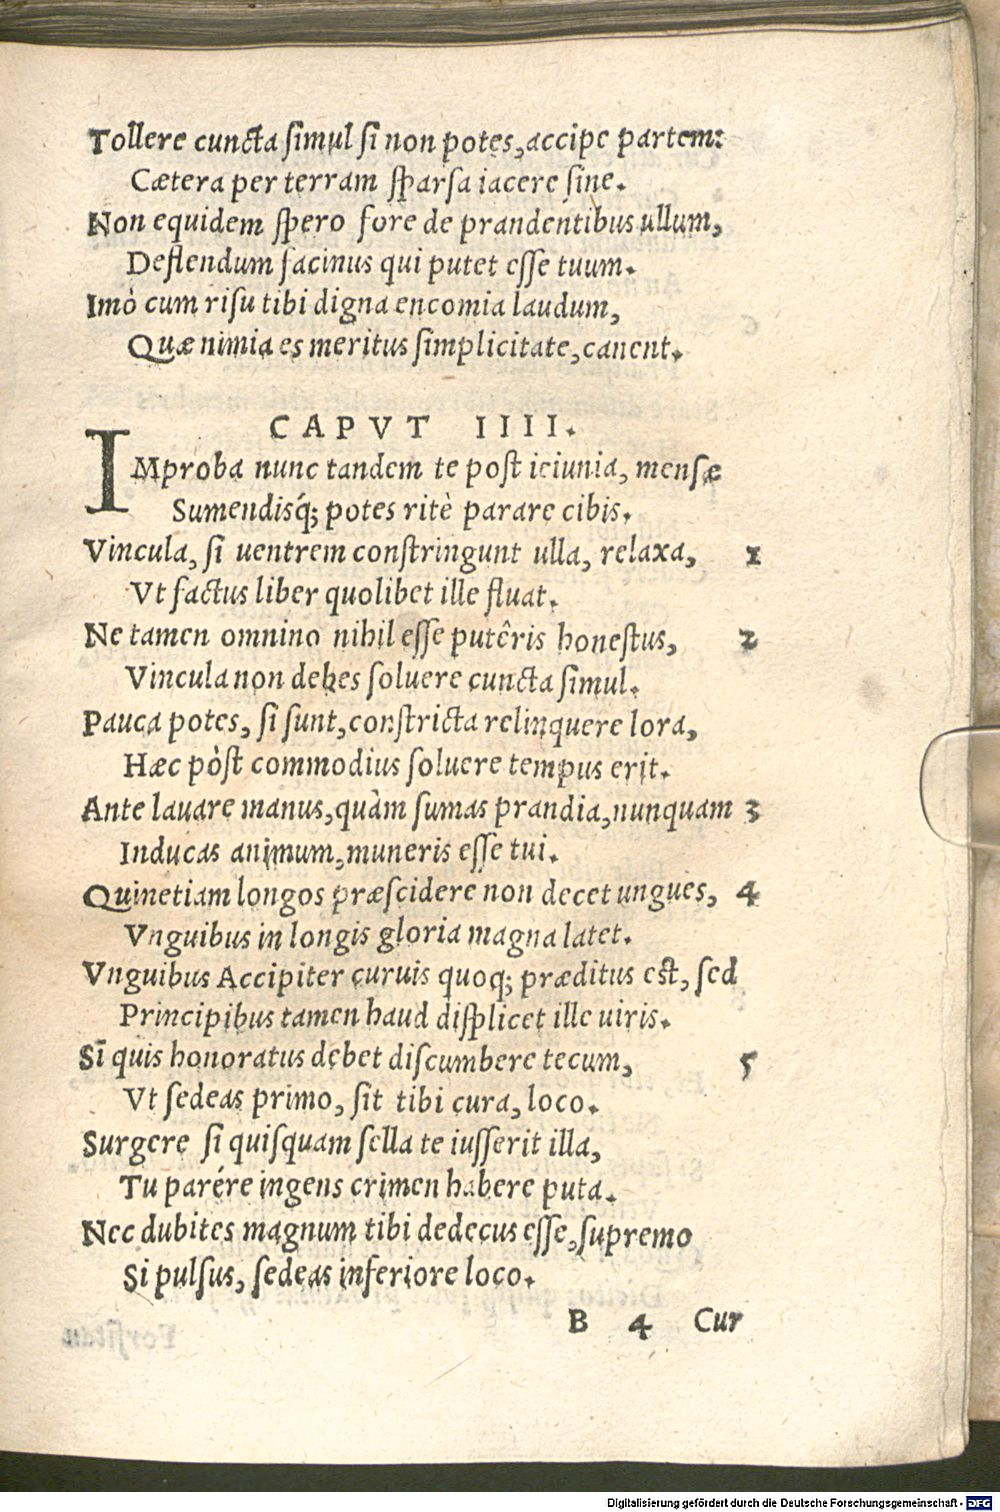 Tollere cuncta simul si non potes, accipe partem:
Cætera per terram sparsa iacere sine.
Non equidem spero fore de prandentibus ullum,
Deflendum facinus qui putet esse tuum.
Imò cum risu tibi digna encomia laudum,
Quæ nimia es meritus simplicitate, canent.
CAPVT IIII.
IMproba nunc tandem te post ieiunia, mensæ
Sumendisq́; potes ritè parare cibis.
Vincula, si uentrem constringunt ulla, relaxa, 1
Vt factus liber quolibet ille fluat.
Ne tamen omnino nihil esse putêris honestus, 2
Vincula non debes soluere cuncta simul.
Pauca potes, si sunt, constricta relinquere lora,
Hæc pòst commodius soluere tempus erit.
Ante lauare manus, quàm sumas prandia, nunquam 3
Inducas animum, muneris esse tui.
Quinetiam longos præscidere non decet ungues, 4
Vnguibus in longis gloria magna latet.
Vnguibus Accipiter curuis quoq; præditus est, sed
Principibus tamen haud displicet ille uiris.
Si quis honoratus debet discumbere tecum, 5
Vt sedeas primo, sit tibi cura, loco.
Surgere si quisquam sella te iusserit illa,
Tu parére ingens crimen habere puta.
Nec dubites magnum tibi dedecus esse, supremo
Si pulsus, sedeas inferiore loco.
B 4 Cur
Digitalisierung gefördert durch die Deutsche Forschungsgemeinschaft - DFG